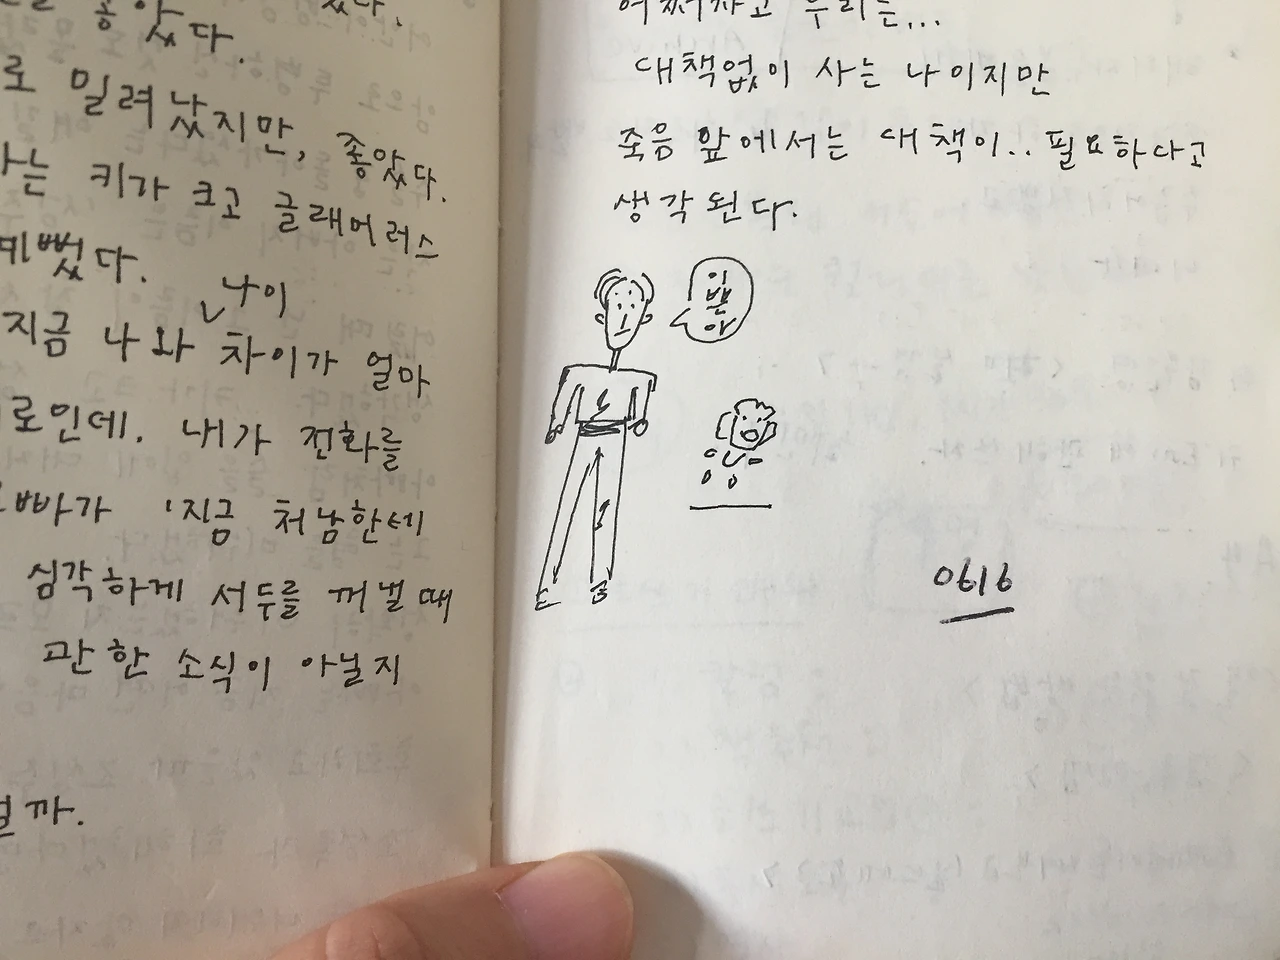 좋았다.
로 밀려났지만, 좋았다.
는 키가 크고 글래머러스
예뻤다.
나이
지금 나와 차이가 얼마
로인데. 내가 전화를
오빠가 '지금 처남한테
심각하게 서두를 꺼낼 때
관한 소식이 아닐지
까.
어쩌자고 우리는...
대책없이 사는 나이지만
죽음 앞에서는 대책이.. 필요하다고
생각된다.
이쁜
아
0616